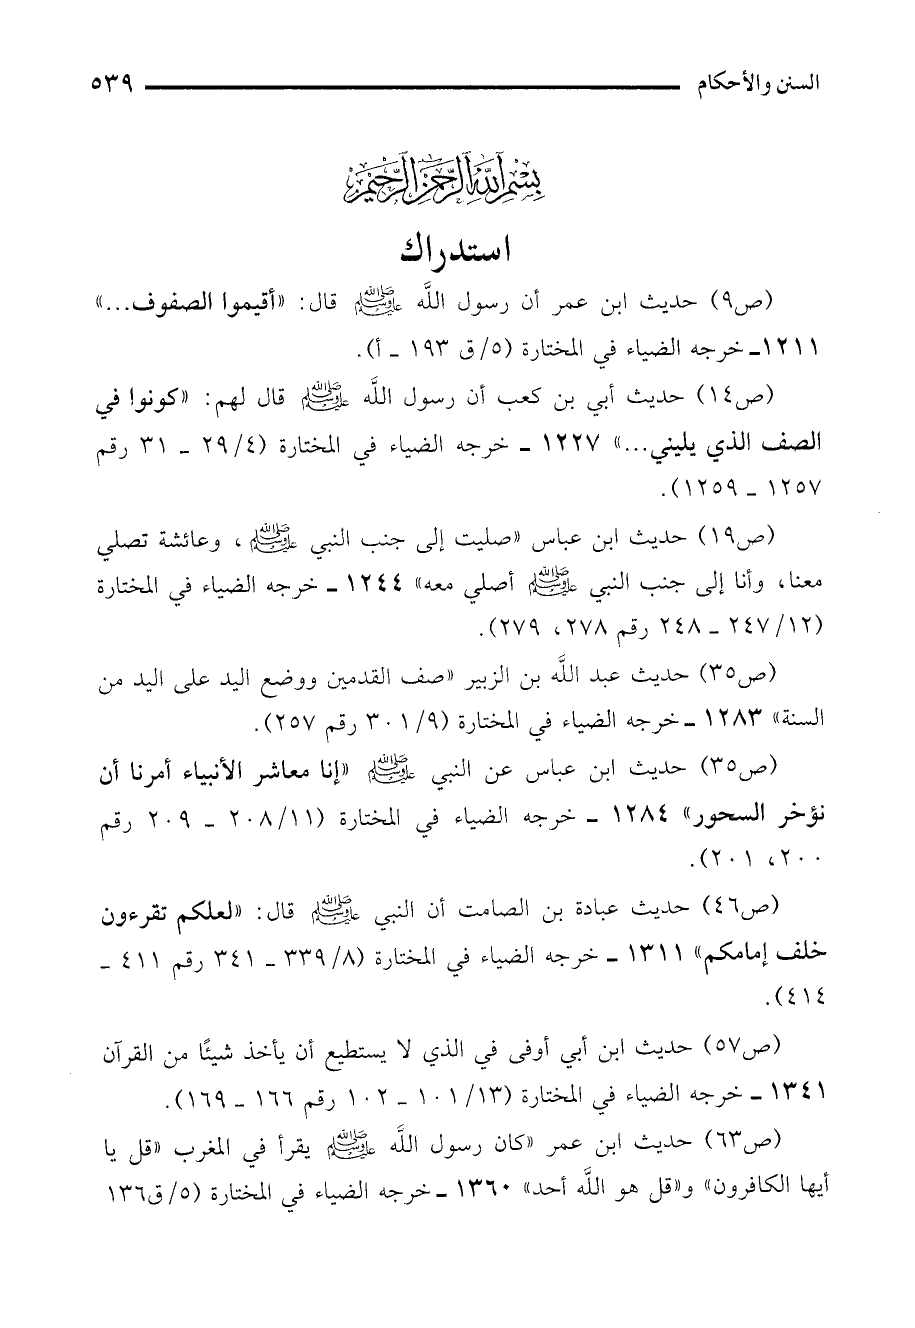 السنن والأحكام ٥٣٩
بسم الله الرحمن الرحيم
استدراك
(ص٩) حديث ابن عمر أن رسول اللَّه ﷺ قال: «أقيموا الصفوف...»
١٢١١ـ خرجه الضياء في المختارة (٥/ ق ١٩٣ ـ أ).
(ص١٤) حديث أبي بن كعب أن رسول اللَّه ﷺ قال لهم: «كونوا في
الصف الذي يليني...» ١٢٢٧ ـ خرجه الضياء في المختارة (٤/ ٢٩ ـ ٣١ رقم
١٢٥٧ ـ ١٢٥٩).
(ص١٩) حديث ابن عباس «صليت إلى جنب النبي ﷺ، وعائشة تصلي
معنا، وأنا إلى جنب النبي ﷺ أصلي معه» ١٢٤٤ ـ خرجه الضياء في المختارة
(١٢/ ٢٤٧ ـ ٢٤٨ رقم ٢٧٨، ٢٧٩).
(ص٣٥) حديث عبد اللَّه بن الزبير «صف القدمين ووضع اليد على اليد من
السنة» ١٢٨٣ ـ خرجه الضياء في المختارة (٩/ ٣٠١ رقم ٢٥٧).
(ص٣٥) حديث ابن عباس عن النبي ﷺ «إنا معاشر الأنبياء أمرنا أن
نؤخر السحور» ١٢٨٤ ـ خرجه الضياء في المختارة (١١/ ٢٠٨ ـ ٢٠٩ رقم
٢٠٠، ٢٠١).
(ص٤٦) حديث عبادة بن الصامت أن النبي ﷺ قال: «لعلكم تقرءون
خلف إمامكم» ١٣١١ ـ خرجه الضياء في المختارة (٨/ ٣٣٩ ـ ٣٤١ رقم ٤١١ ـ
٤١٤).
(ص٥٧) حديث ابن أبي أوفى في الذي لا يستطيع أن يأخذ شيئًا من القرآن
١٣٤١ ـ خرجه الضياء في المختارة (١٣/ ١٠١ ـ ١٠٢ رقم ١٦٦ ـ ١٦٩).
(ص٦٣) حديث ابن عمر «كان رسول اللَّه ﷺ يقرأ في المغرب «قل يا
أيها الكافرون» و«قل هو اللَّه أحد» ١٣٦٠ ـ خرجه الضياء في المختارة (٥/ ق١٣٦